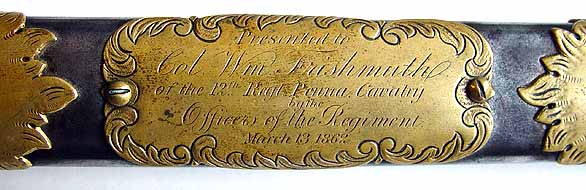 Presented to
Col Wm Frishmuth
of the 12th Regt. Penna. Cavalry
by the
Officers of the Regiment
March 13 1862